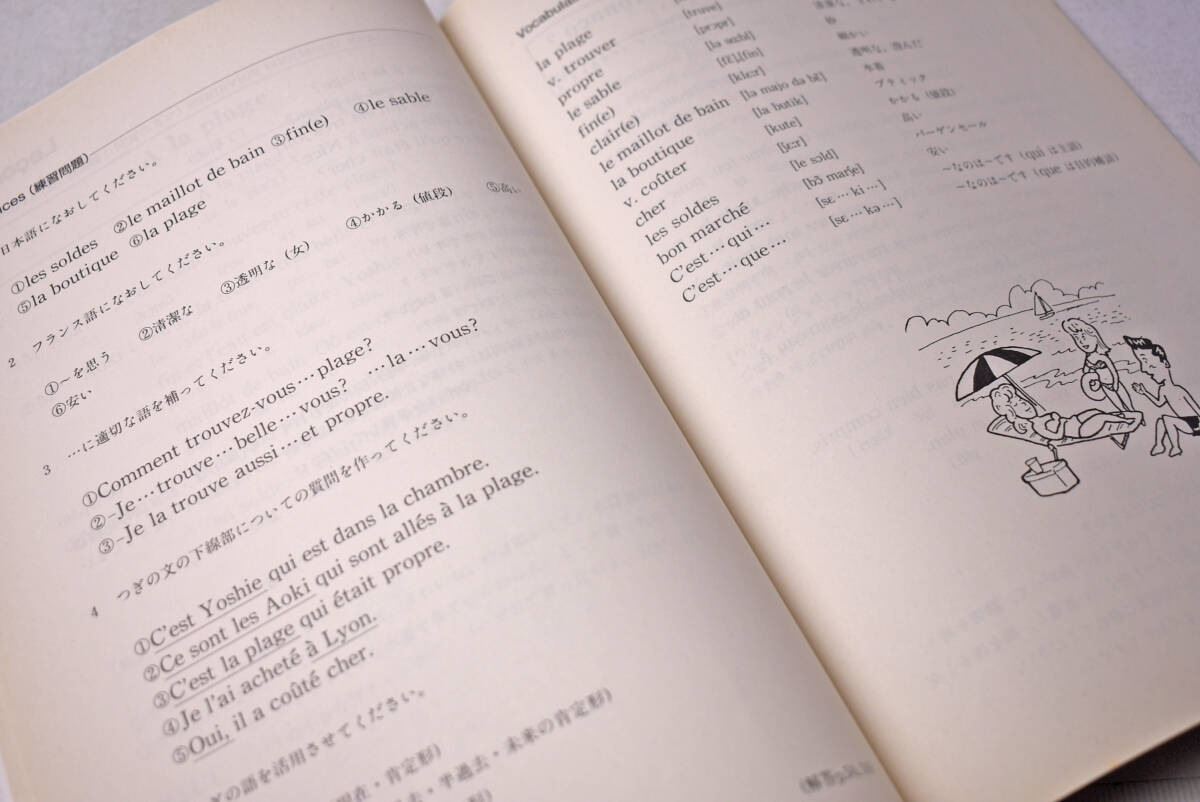 ices (練習問題)
日本語になおしてください。
①les soldes ②le maillot de bain ③fin(e) ④le sable
⑤la boutique ⑥la plage
2 フランス語になおしてください。
①～を思う ②清潔な ③透明な（女） ④かかる（値段） ⑤高い
⑥安い
3 …に適切な語を補ってください。
①Comment trouvez-vous…plage?
②–Je…trouve…belle…vous? …la…vous?
③–Je la trouve aussi…et propre.
4 つぎの文の下線部についての質問を作ってください。
①C'est Yoshie qui est dans la chambre.
②Ce sont les Aoki qui sont allés à la plage.
③C'est la plage qui était propre.
④Je l'ai acheté à Lyon.
⑤Oui, il a coûté cher.
の語を活用させてください。
現在・肯定形)
去・半過去・未来の肯定形)
Vocabulai
la plage
v. trouver [truve]
propre [prɔpr]
le sable [lə sɑbl] 砂
fin(e) [fɛ̃],[fin] 細かい
clair(e) [klɛːr] 透明な，澄んだ
le maillot de bain [lə majo də bɛ̃] 水着
la boutique [la butik] ブティック
v. coûter [kute] かかる（値段）
cher [ʃɛːr] 高い
les soldes [le sɔld] バーゲンセール
bon marché [bɔ̃ marʃe] 安い
C'est…qui… [sɛ…ki…] ～なのは～です (qui は主語)
C'est…que… [sɛ…kə…] ～なのは～です (que は目的補語)